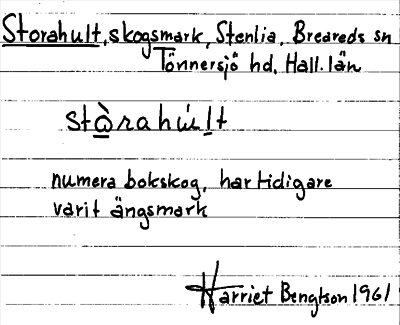 Storahult, skogsmark, Stenlia, Breareds sn
Tönnersjö hd, Hall. län
stɷ̀rahúlt
numera bokskog, har tidigare
varit ängsmark
Harriet Bengtson 1961